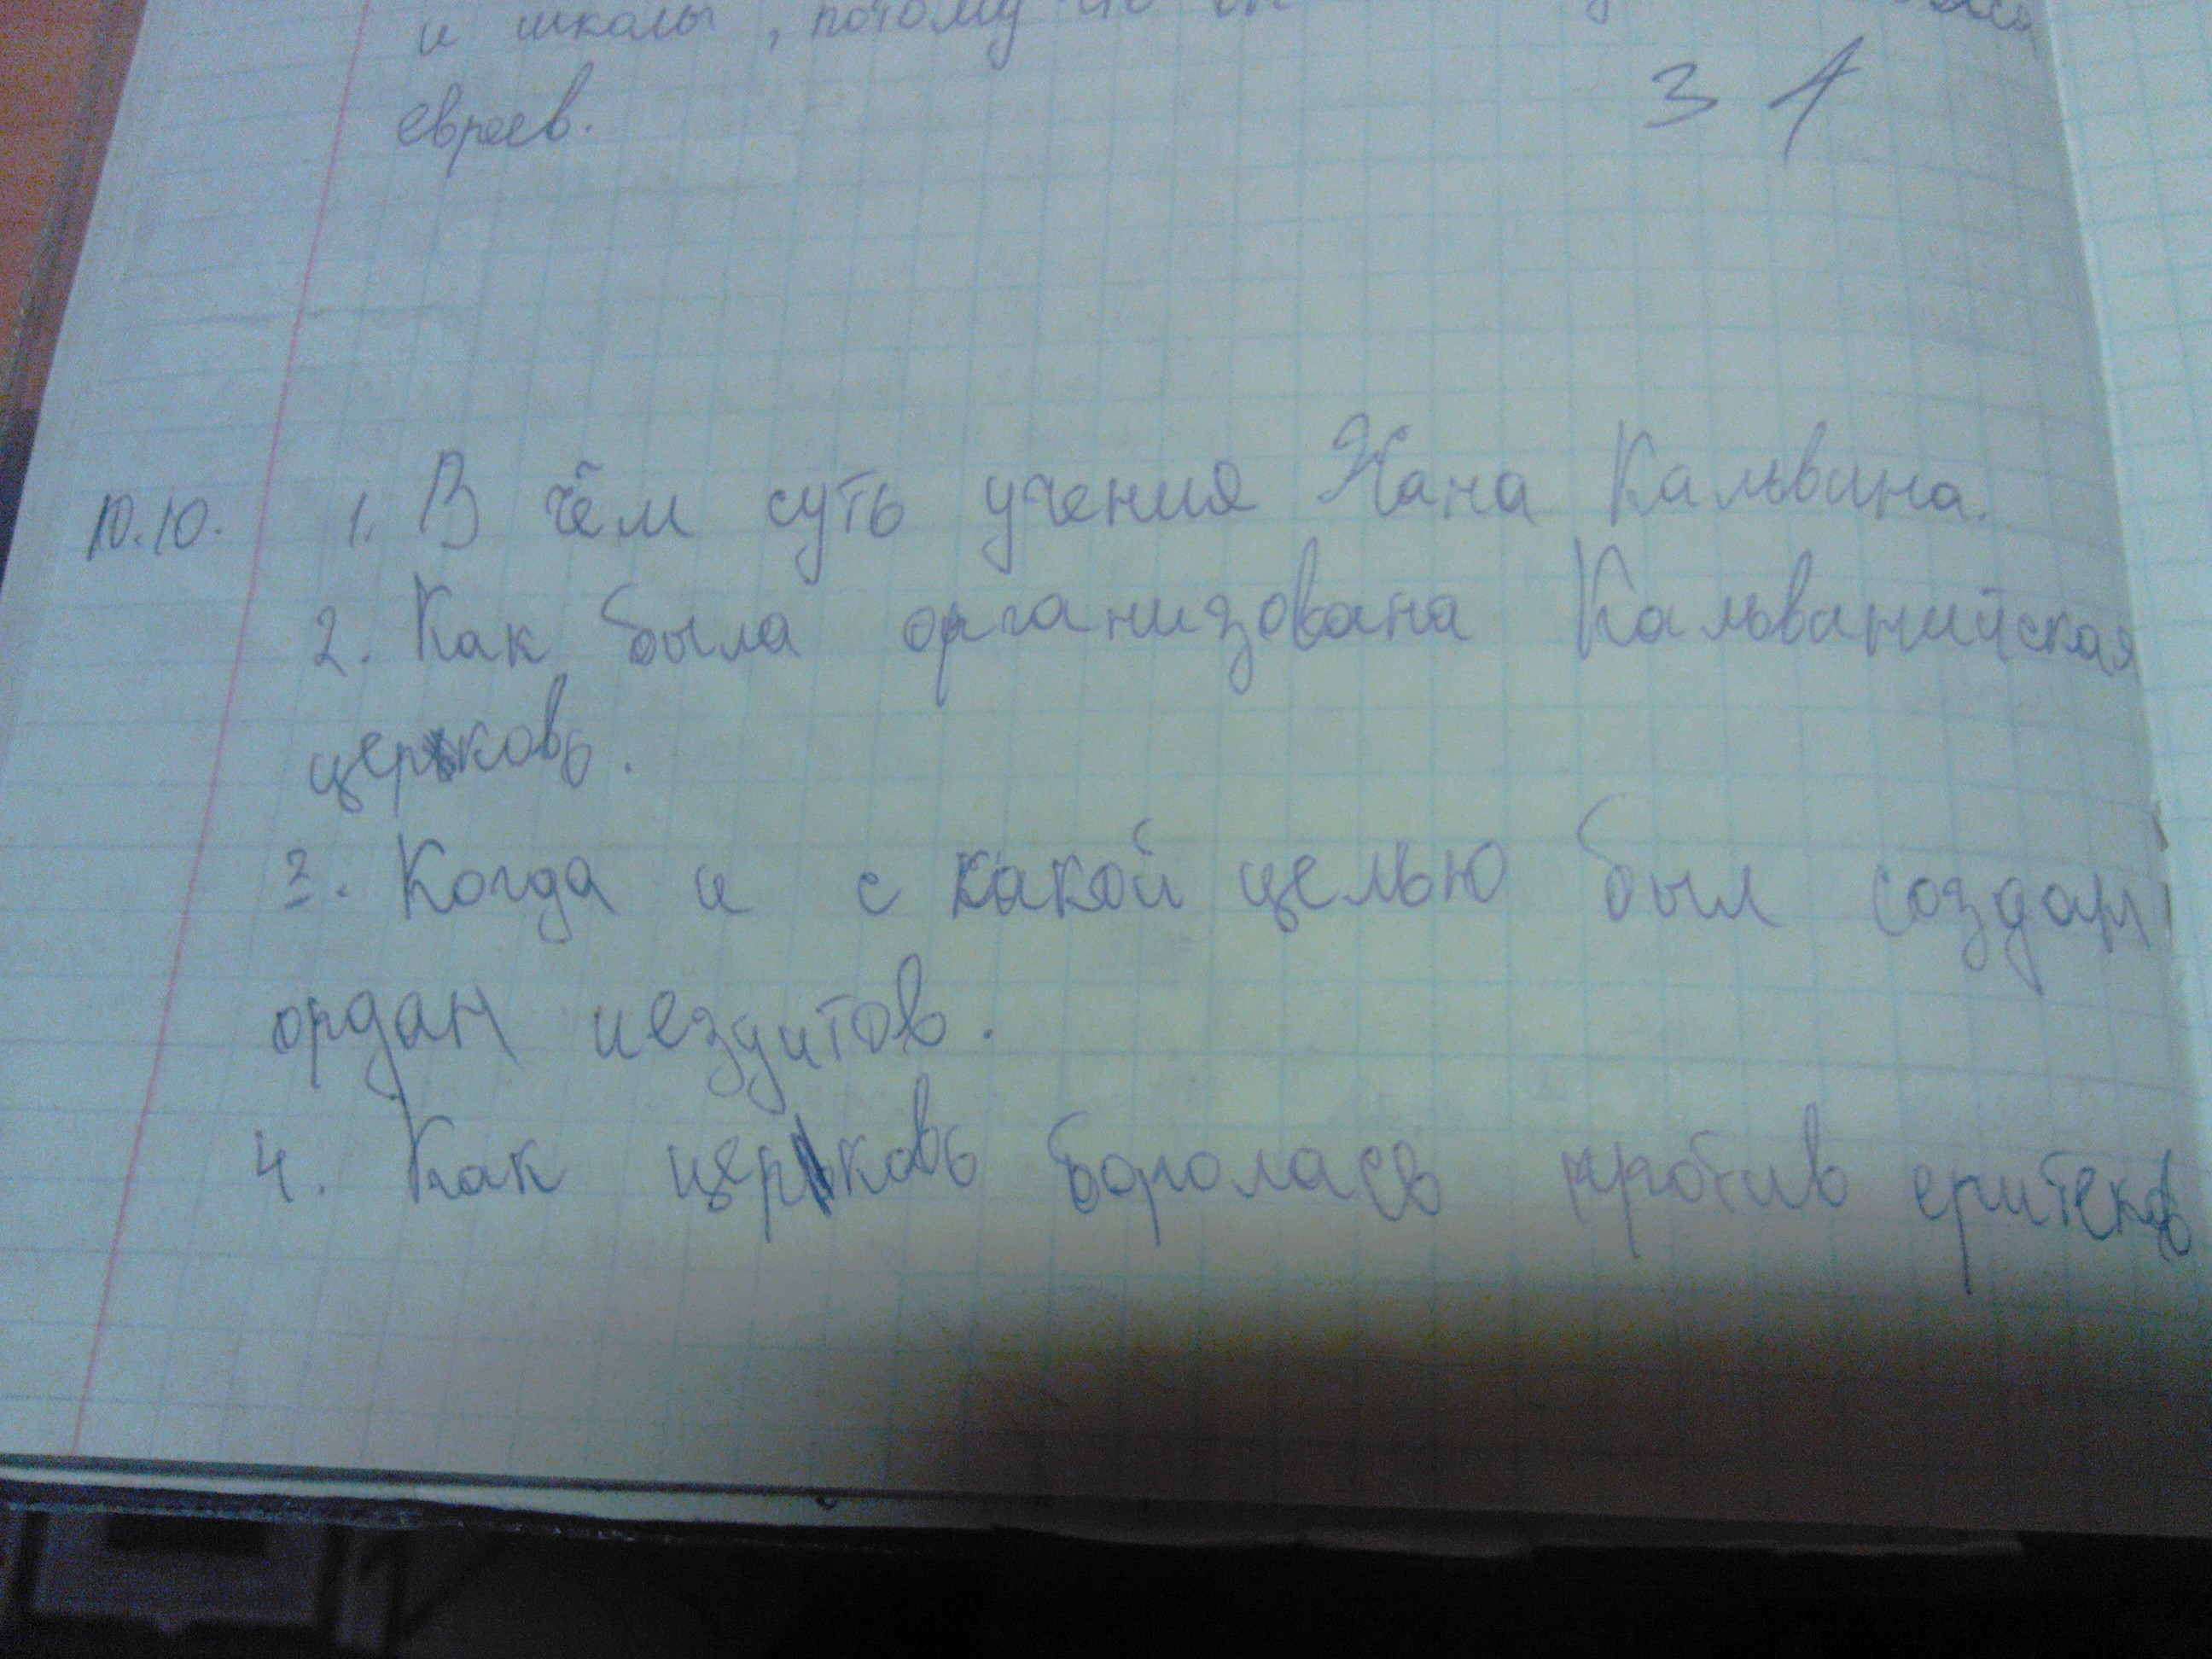 и школы, потому
евреев.
3
10.10. 1. В чём суть учения Жана Кальвина.
2. Как была организована Кальванийская
церковь.
3. Когда и с какой целью был создан
ордан иезуитов.
4. Как церковь боролась против еритеков